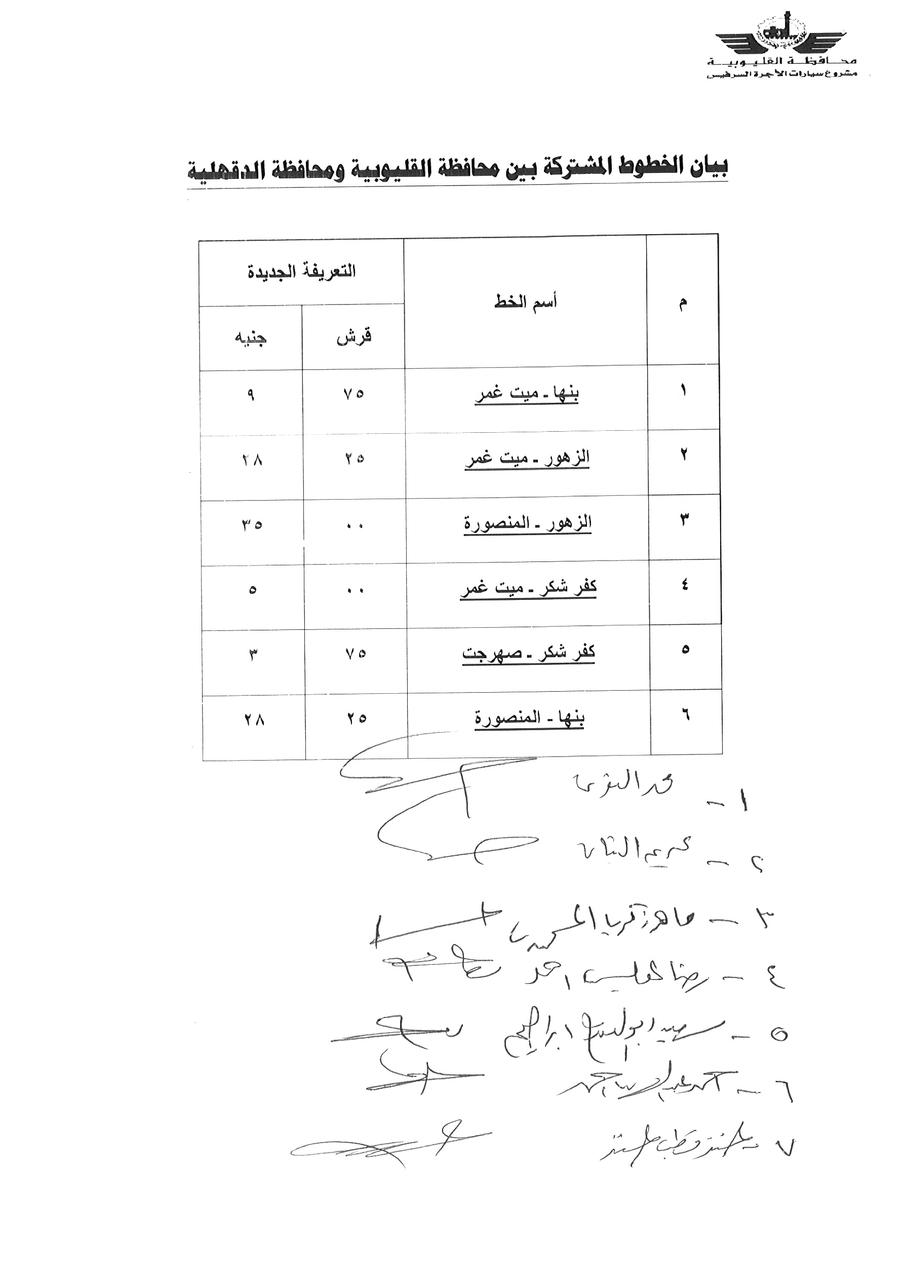 محافظة القليوبية
مشروع سيارات الأجرة السرفيس
بيان الخطوط المشتركة بين محافظة القليوبية ومحافظة الدقهلية
م أسم الخط التعريفة الجديدة
قرش جنيه
١ بنها - ميت غمر ٧٥ ٩
٢ الزهور - ميت غمر ٢٥ ٢٨
٣ الزهور - المنصورة ٠٠ ٣٥
٤ كفر شكر - ميت غمر ٠٠ ٥
٥ كفر شكر - صهرجت ٧٥ ٣
٦ بنها - المنصورة ٢٥ ٢٨
١ - محمد
٢ -
٣ - ماهر زكريا
٤ - رضا احمد
٥ - ابراهيم
٦ - احمد احمد
٧